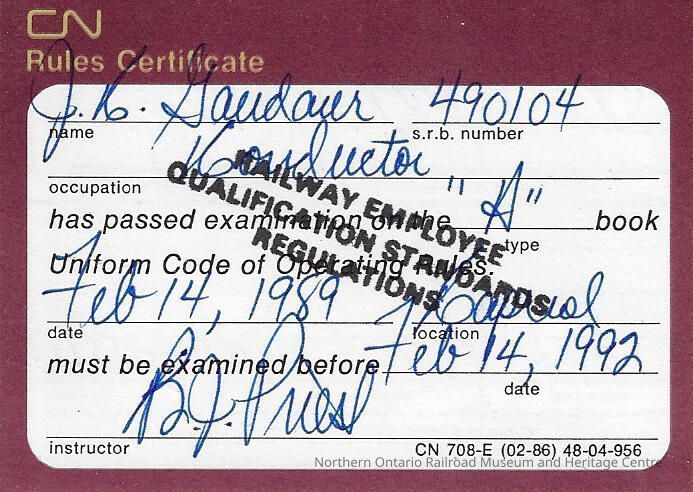 CN
Rules Certificate
J. K. Gaudaur 490104
name s.r.b. number
Conductor
occupation
RAILWAY EMPLOYEE
QUALIFICATION STANDARDS
REGULATIONS
has passed examination on the "A" book
type
Uniform Code of Operating Rules.
Feb 14, 1989 Capreol
date location
must be examined before Feb 14, 1992
date
B.J. Priest
instructor CN 708-E (02-86) 48-04-956
Northern Ontario Railroad Museum and Heritage Centre